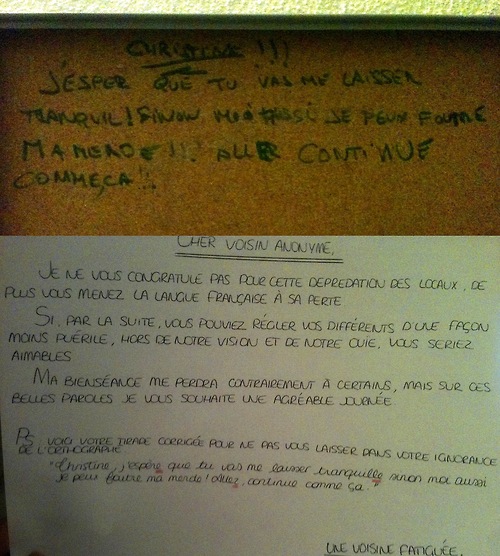 CHRISTINE !!!
J'ÉSPER QUE TU VAS ME LAISSER
TRANQUIL! SINON MOI AUSSI JE PEUX FOUTRE
MA MERDE!!! ALLER CONTINUE
COMME ÇA!!
CHER VOISIN ANONYME,
JE NE VOUS CONGRATULE PAS POUR CETTE DEPREDATION DES LOCAUX, DE
PLUS VOUS MENEZ LA LANGUE FRANÇAISE À SA PERTE
SI, PAR LA SUITE, VOUS POUVIEZ RÉGLER VOS DIFFÉRENTS D'UNE FAÇON
MOINS PUÉRILE, HORS DE NOTRE VISION ET DE NOTRE OUIE, VOUS SERIEZ
AIMABLES
MA BIENSÉANCE ME PERDRA CONTRAIREMENT À CERTAINS, MAIS SUR CES
BELLES PAROLES JE VOUS SOUHAITE UNE AGRÉABLE JOURNÉE
PS : VOICI VOTRE TIRADE CORRIGÉE POUR NE PAS VOUS LAISSER DANS VOTRE IGNORANCE
DE L'ORTHOGRAPHE
"Christine, j'espère que tu vas me laisser tranquille sinon moi aussi
je peux foutre ma merde! Allez, continue comme ça."
UNE VOISINE FATIGUÉE.